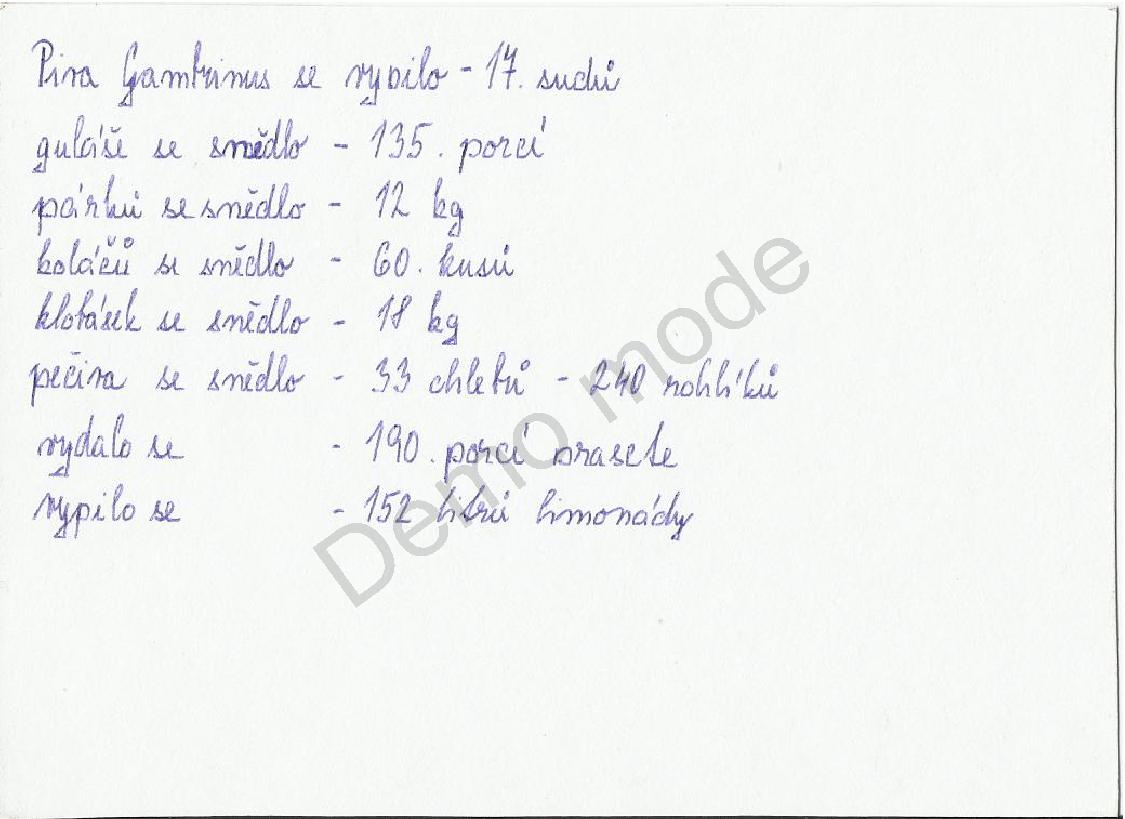 Piva Gambrinus se vypilo - 17. sudů
guláše se snědlo - 135. porcí
párků se snědlo - 12 kg
koláčů se snědlo - 60. kusů
klobásek se snědlo - 18 kg
pečiva se snědlo - 33 chlebů - 240 rohlíků
vydalo se - 190. porcí prasete
vypilo se - 152 litrů limonády
Demo mode